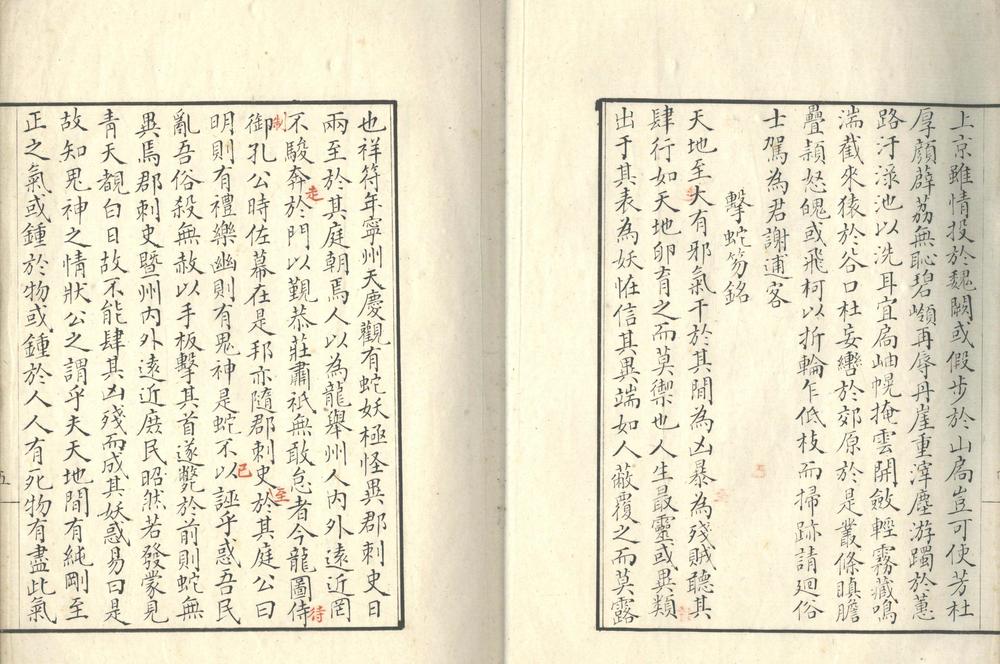 上京雖情投於魏闕或假步於山扃豈可使芳杜
厚顏薜荔無恥碧嶺再辱丹崖重滓塵游躅於蕙
路汙渌池以洗耳宜扃岫幌掩雲開斂輕霧藏鳴
湍截來猿於谷口杜妄轡於郊原於是叢條瞋膽
疊穎怒魄或飛柯以折輪乍低枝而掃跡請迴俗
士駕為君謝逋客
擊蛇笏銘
天地至大有邪氣干於其間為凶暴為殘賊聽其
肆行如天地卵育之而莫禦也人生最靈或異類
出于其表為妖怪信其異端如人蔽覆之而莫露
也祥符年寧州天慶觀有蛇妖極怪異郡刺史日
兩至於其庭朝焉人以為龍舉州人內外遠近罔
不駿奔於門以覲恭莊肅祗無敢怠者今龍圖侍
走
待
御孔公時佐幕在是邦亦隨郡刺史於其庭公曰
制
至
明則有禮樂幽則有鬼神是蛇不以誣乎惑吾民
已
亂吾俗殺無赦以手板擊其首遂斃於前則蛇無
異焉郡刺史暨州內外遠近庶民昭然若發蒙見
青天覩白日故不能肆其凶殘而成其妖惑易曰是
故知鬼神之情狀公之謂乎夫天地間有純剛至
正之氣或鍾於物或鍾於人人有死物有盡此氣
五